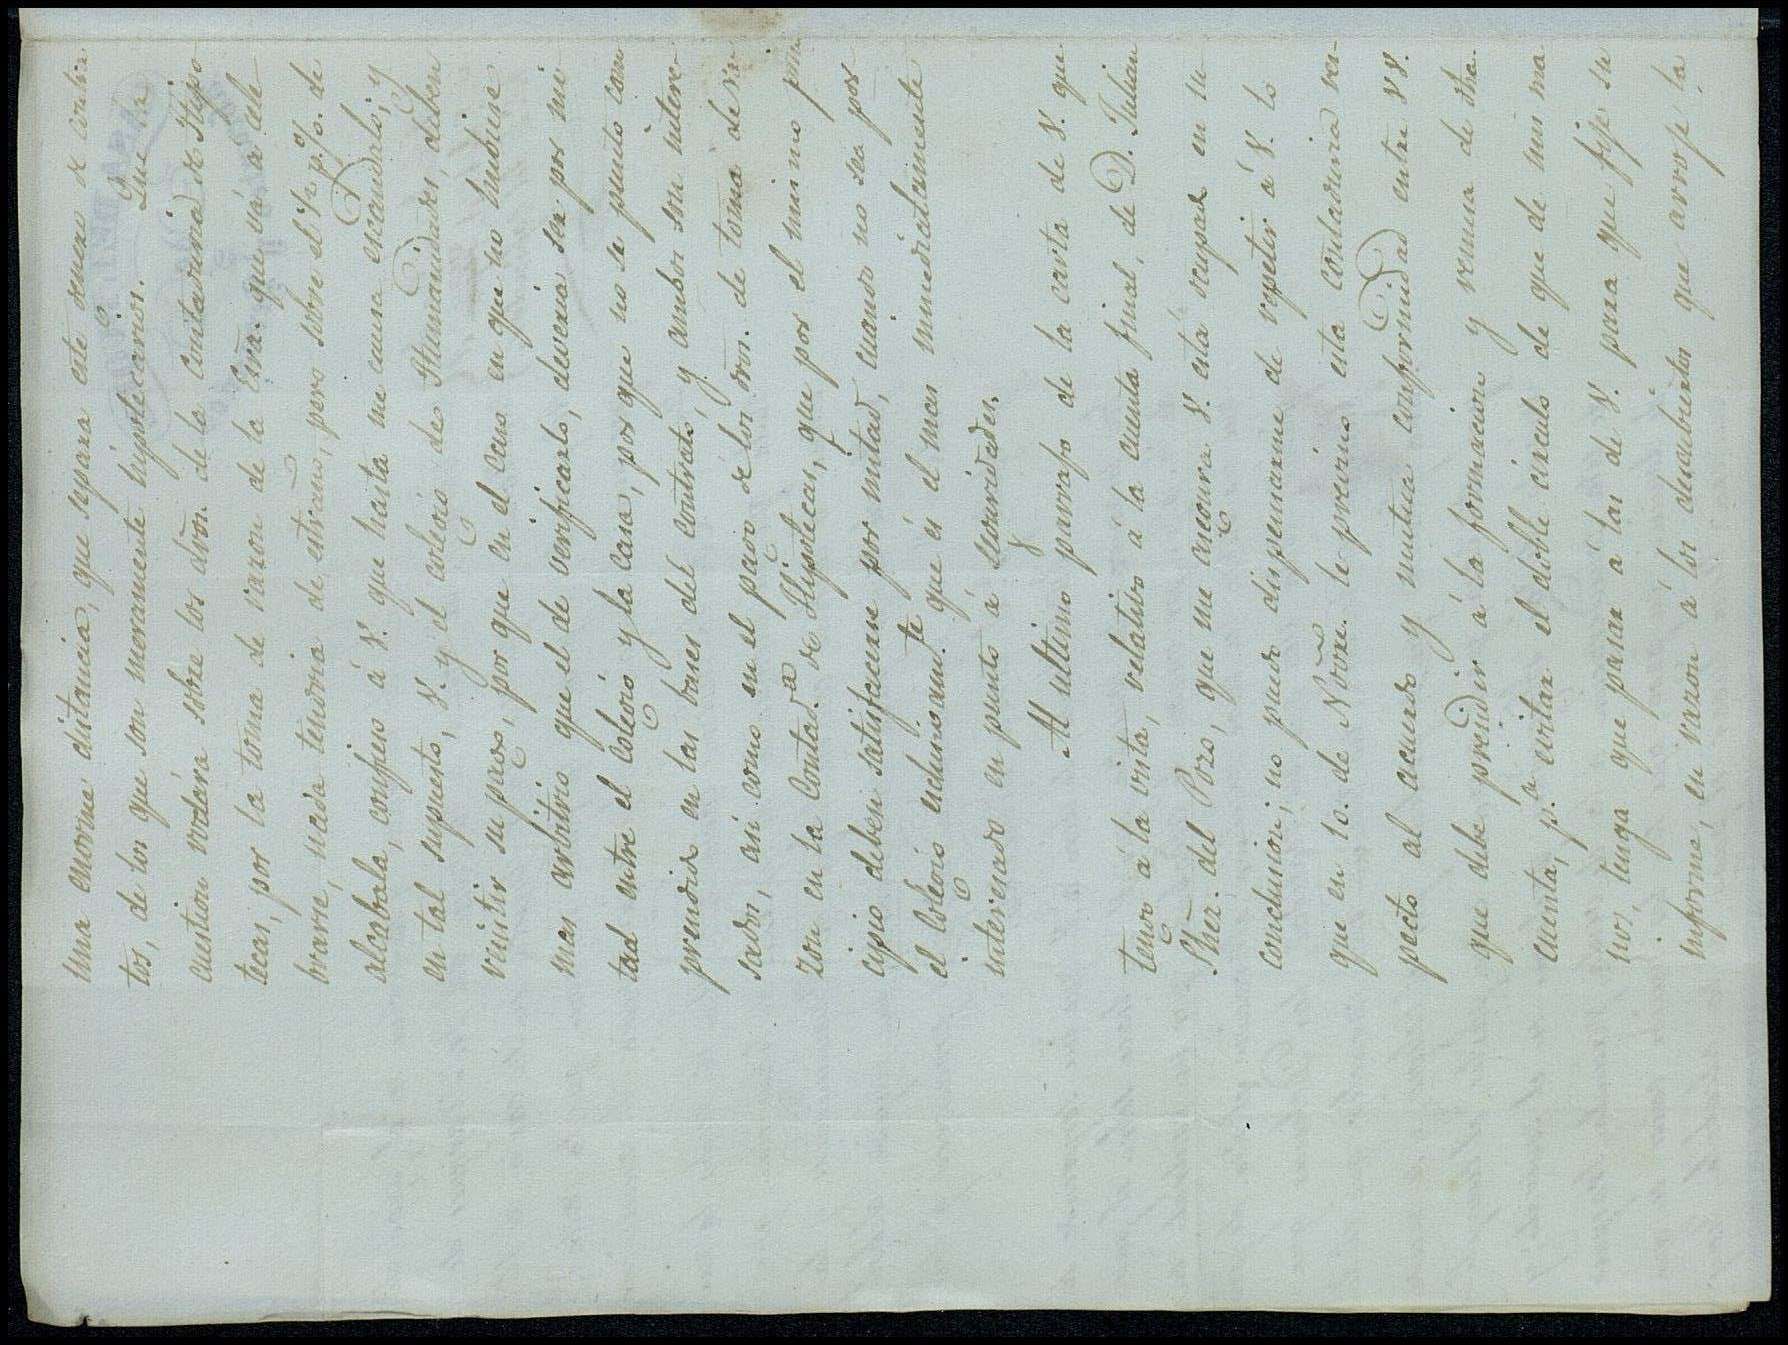 una enorme distancia, que separa este genero de contra-
tos, de los que son meramente hipotecarios. Que la
cuestion rodára sobre los dros. de la Contaduria de Hipo-
tecas, por la toma de razon de la Esra. que vá a cele-
brarse, nada tendria de estraño, pero sobre el ½ p.% de
alcabala, confieso á V. que hasta me causa escandalo; y
en tal supuesto, V. y el colegio de Humanidades, deben
resistir su pago, por que en el caso en que no hubiese
mas arbitrio que el de verificarlo, deveria ser por mi-
tad entre el Colegio y la casa, por que no se puntó com
prendido en las bases del contrato, y ambos son intere-
sados, asi como en el pago de los dros. de toma de ra-
zon en la Contad.a de Hipotecas, que por el mismo prin
cipio deben satisfacerse por mitad, cuando no sea por
el Colegio esclusivamte. que és el mas inmediatamente
interesado en punto á seguridades.
Al ultimo parrafo de la carta de V. que
tengo á la vista, relativo á la cuenta final, de D. Julian
Shez. del Pozo, que me asegura V. está ocupado en su
conclusion; no puedo dispensarme de repetir á V. lo
que en 10. de Novre. le previno esta contaduria res-
pecto al acuerdo y mutua conformidad entre VV.
que debe presidir á la formacion y remesa de dha.
cuenta, p.a evitar el doble circulo de que de mis ma
nos, tenga que pasar á las de V. para que fije su
informe, en razon á los descubiertos que arroje la